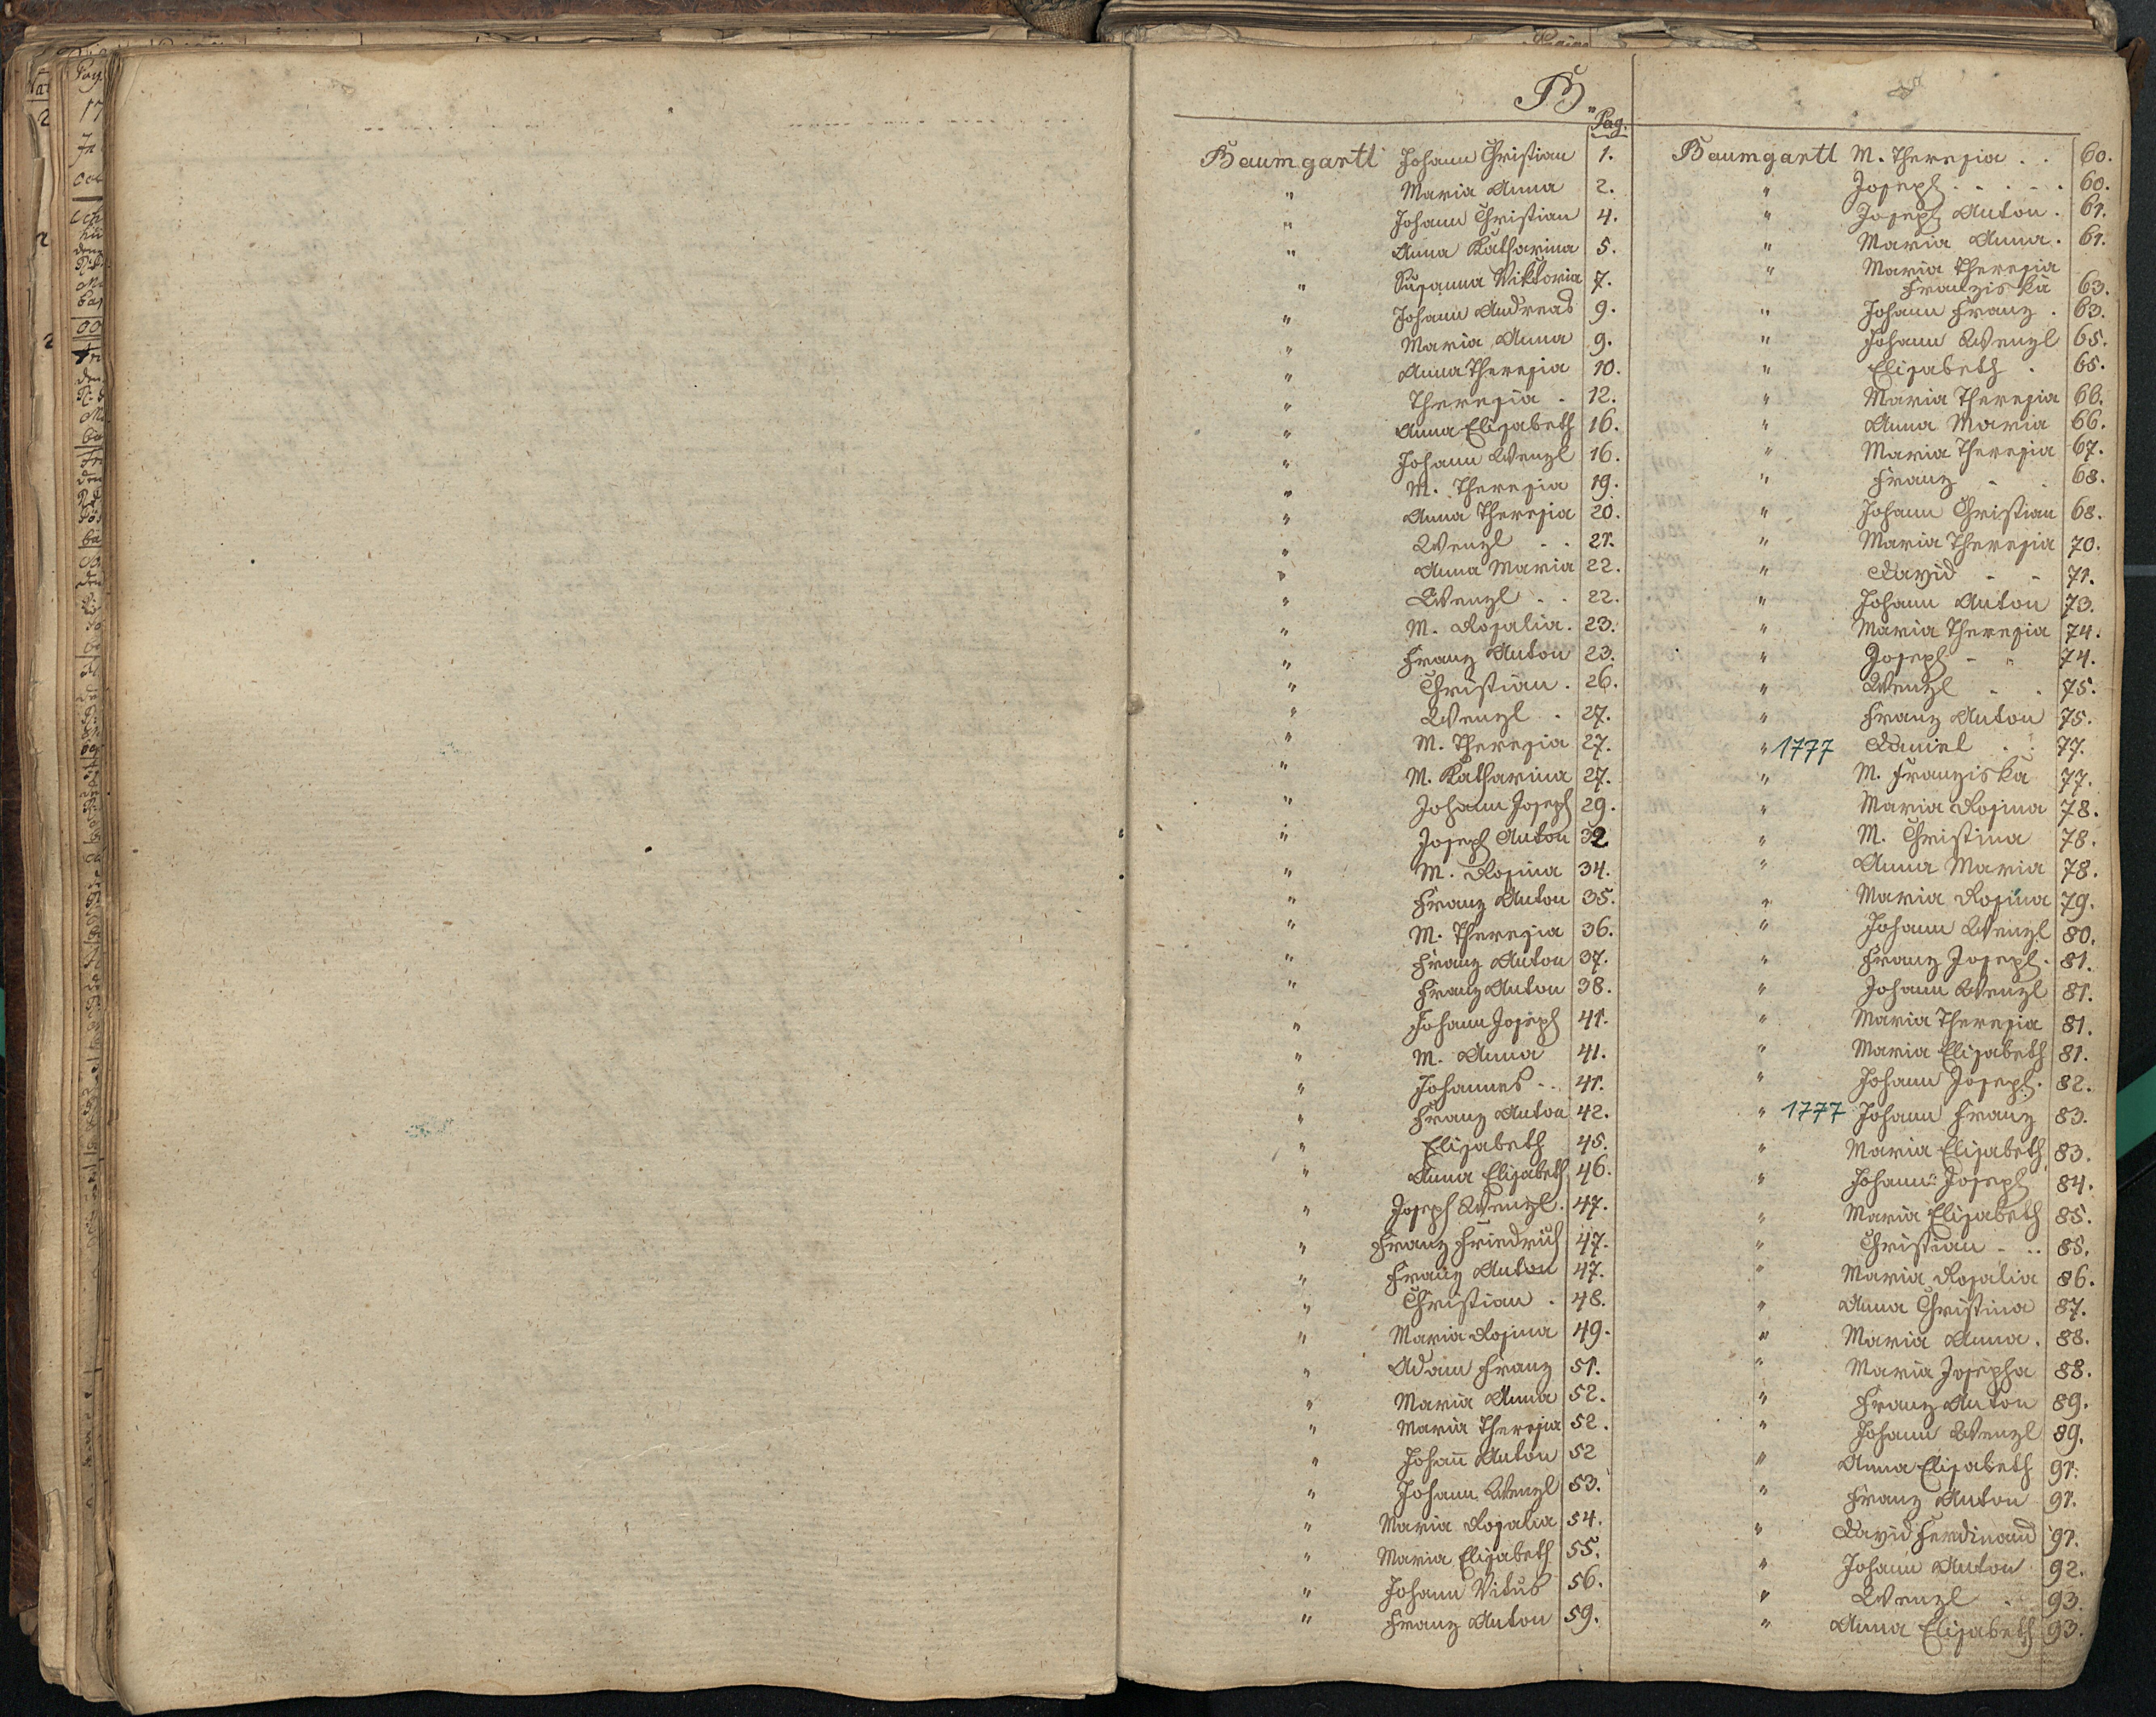 B.
Pag.
Baumgartl Johann Christian 1.
" Maria Anna 2.
" Johann Christian 4.
" Anna Katharina 5.
" Susanna Viktoria 7.
" Johann Andreas 9.
" Maria Anna 9.
" Anna Theresia 10.
" Theresia . 12.
" Anna Elisabeth 16.
" Johann Wenzl 16.
" M. Theresia 19.
" Anna Theresia 20.
" Wenzl . . 21.
" Anna Maria 22.
" Wenzl . . 22.
" M. Rosalia. 23.
" Franz Anton 23.
" Christian . 26.
" Wenzl . 27.
" M. Theresia 27.
" M. Katharina 27.
" Johann Joseph 29.
" Joseph Anton 32
" M. Rosina 34.
" Franz Anton 35.
" M. Theresia 36.
" Franz Anton 37.
" Franz Anton 38.
" Johann Joseph 41.
" M. Anna 41.
" Johannes . . 41.
" Franz Anton 42.
" Elisabeth 45.
" Anna Elisabeth 46.
" Joseph Wenzl. 47.
" Franz Friedrich 47.
" Franz Anton 47.
" Christian . 48.
" Maria Rosina 49.
" Adam Franz 51.
" Maria Anna 52.
" Maria Theresia 52.
" Johañ Anton 52
" Johann Wenzl 53.
" Maria Rosalia 54.
" Maria Elisabeth 55.
" Johann Vitus 56.
" Franz Anton 59.
Baumgartl M. Theresia . . 60.
" Joseph . . . . . 60.
" Joseph Anton . 61.
" Maria Anna . 61.
" Maria Theresia
Franziska 63.
" Johann Franz . 63.
" Johann Wenzl 65.
" Elisabeth . 65.
" Maria Theresia 66.
" Anna Maria 66.
" Maria Theresia 67.
" Franz . . 68.
" Johann Christian 68.
" Maria Theresia 70.
" David - - 71.
" Johann Anton 73.
" Maria Theresia 74.
" Joseph - " 74.
" Wenzl . . 75.
" Franz Anton 75.
" 1777 Daniel . . 77.
" M. Franziska 77.
" Maria Rosina 78.
" M. Christina 78.
" Anna Maria 78.
" Maria Rosina 79.
" Johann Wenzl 80.
" Franz Joseph. 81.
" Johann Wenzl 81.
" Maria Theresia 81.
" Maria Elisabeth 81.
" Johann Joseph. 82.
" 1777 Johann Franz 83.
" Maria Elisabeth 83.
" Johann Joseph 84.
" Maria Elisabeth 85.
" Christian - .. 85.
" Maria Rosalia 86.
" Anna Christina 87.
" Maria Anna . 88.
" Maria Josepha 88.
" Franz Anton 89.
" Johann Wenzl 89.
" Anna Elisabeth 91.
" Franz Anton 91.
" David Ferdinand 91.
" Johann Anton 92.
" Wenzl . . 93.
" Anna Elisabeth 93.